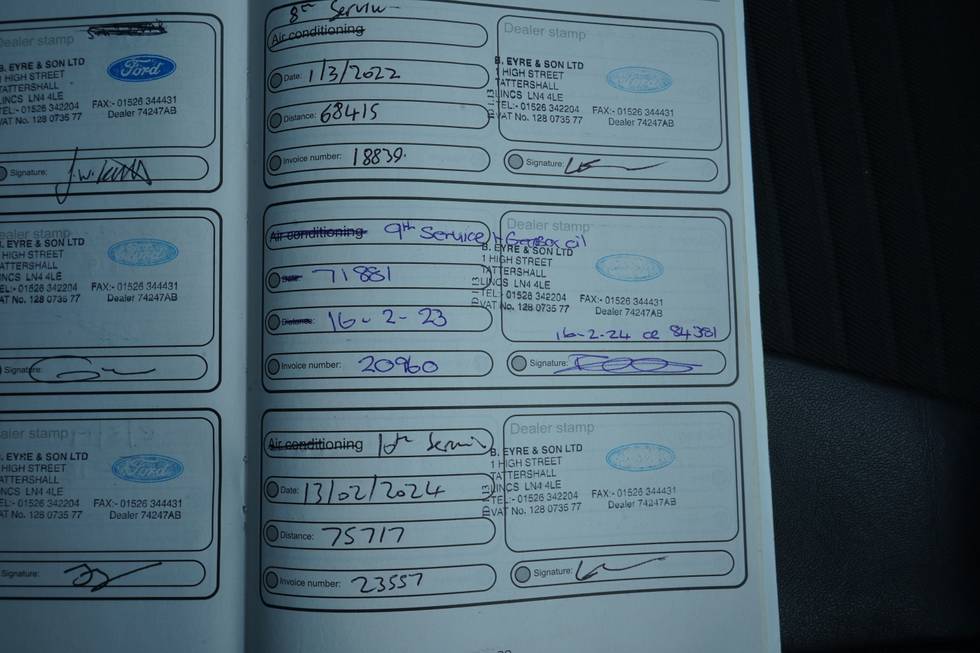 Dealer stamp
B. EYRE & SON LTD
1 HIGH STREET
TATTERSHALL
LINCS LN4 4LE
TEL:- 01526 342204 FAX:- 01526 344431
VAT No. 128 0735 77 Dealer 74247AB
Ford
Signature:
Dealer stamp
B. EYRE & SON LTD
1 HIGH STREET
TATTERSHALL
LINCS LN4 4LE
TEL:- 01526 342204 FAX:- 01526 344431
VAT No. 128 0735 77 Dealer 74247AB
Ford
Signature:
Dealer stamp
B. EYRE & SON LTD
1 HIGH STREET
TATTERSHALL
LINCS LN4 4LE
TEL:- 01526 342204 FAX:- 01526 344431
VAT No. 128 0735 77 Dealer 74247AB
Ford
Signature:
8th Service
Air conditioning
Date: 1/3/2022
Distance: 68415
Invoice number: 18839.
Dealer stamp
B. EYRE & SON LTD
1 HIGH STREET
TATTERSHALL
LINCS LN4 4LE
TEL:- 01526 342204 FAX:- 01526 344431
VAT No. 128 0735 77 Dealer 74247AB
Ford
Signature:
Air conditioning 9th Service + Gearbox oil
Date: 71881
Distance: 16-2-23
Invoice number: 20960
Dealer stamp
B. EYRE & SON LTD
1 HIGH STREET
TATTERSHALL
LINCS LN4 4LE
TEL:- 01526 342204 FAX:- 01526 344431
VAT No. 128 0735 77 Dealer 74247AB
16-2-24 or 84381
Signature:
Air conditioning 10th Service
Date: 13/02/2024
Distance: 75717
Invoice number: 23557
Dealer stamp
B. EYRE & SON LTD
1 HIGH STREET
TATTERSHALL
LINCS LN4 4LE
TEL:- 01526 342204 FAX:- 01526 344431
VAT No. 128 0735 77 Dealer 74247AB
Signature: